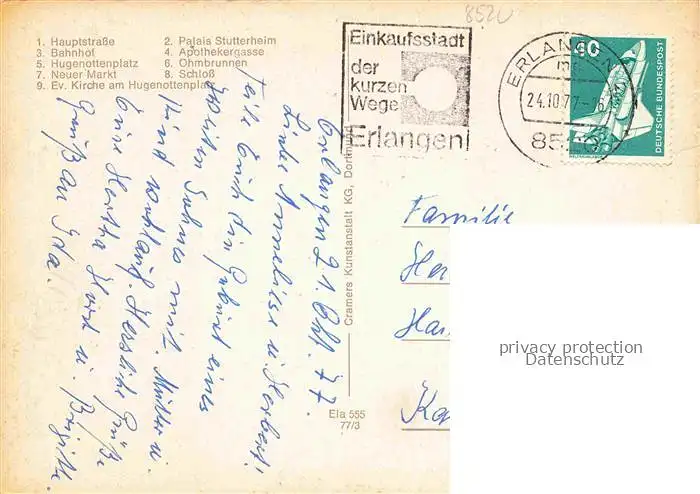 8520
1. Hauptstraße
2. Palais Stutterheim
3. Bahnhof
4. Apothekergasse
5. Hugenottenplatz
6. Ohmbrunnen
7. Neuer Markt
8. Schloß
9. Ev. Kirche am Hugenottenplatz
Einkaufsstadt
der
kurzen
Wege
Erlangen
ERLANGEN
24.10.77-16
8520
40
DEUTSCHE BUNDESPOST
Erlangen 21. Okt. 77.
Liebe Anneliese u. Herbert!
Teile Euch die Geburt eines
zweiten Sohnes mit. Mutter u.
Kind wohlauf. Herzliche Grüße
Eure Hertha Horst u. Brigitte.
Gruß an Ida.
Cramers Kunstanstalt KG, Dortmund
Ela 555
77/3
Familie
Her
Han
Ka
privacy protection
Datenschutz